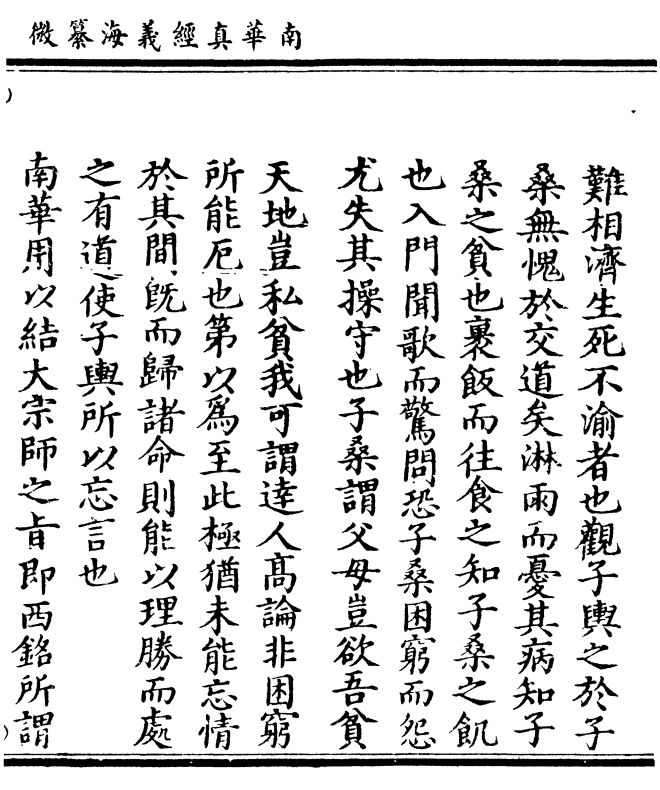 南華真經義海纂微
難相濟生死不渝者也觀子輿之於子
桑無愧於交道矣淋雨而憂其病知子
桑之貧也裹飯而往食之知子桑之飢
也入門聞歌而驚問恐子桑困窮而怨
尤失其操守也子桑謂父母豈欲吾貧
天地豈私貧我可謂達人髙論非困窮
所能厄也第以為至此極猶未能忘情
於其間旣而歸諸命則能以理勝而處
之有道使子輿所以忘言也
南華用以結大宗師之旨即西銘所謂